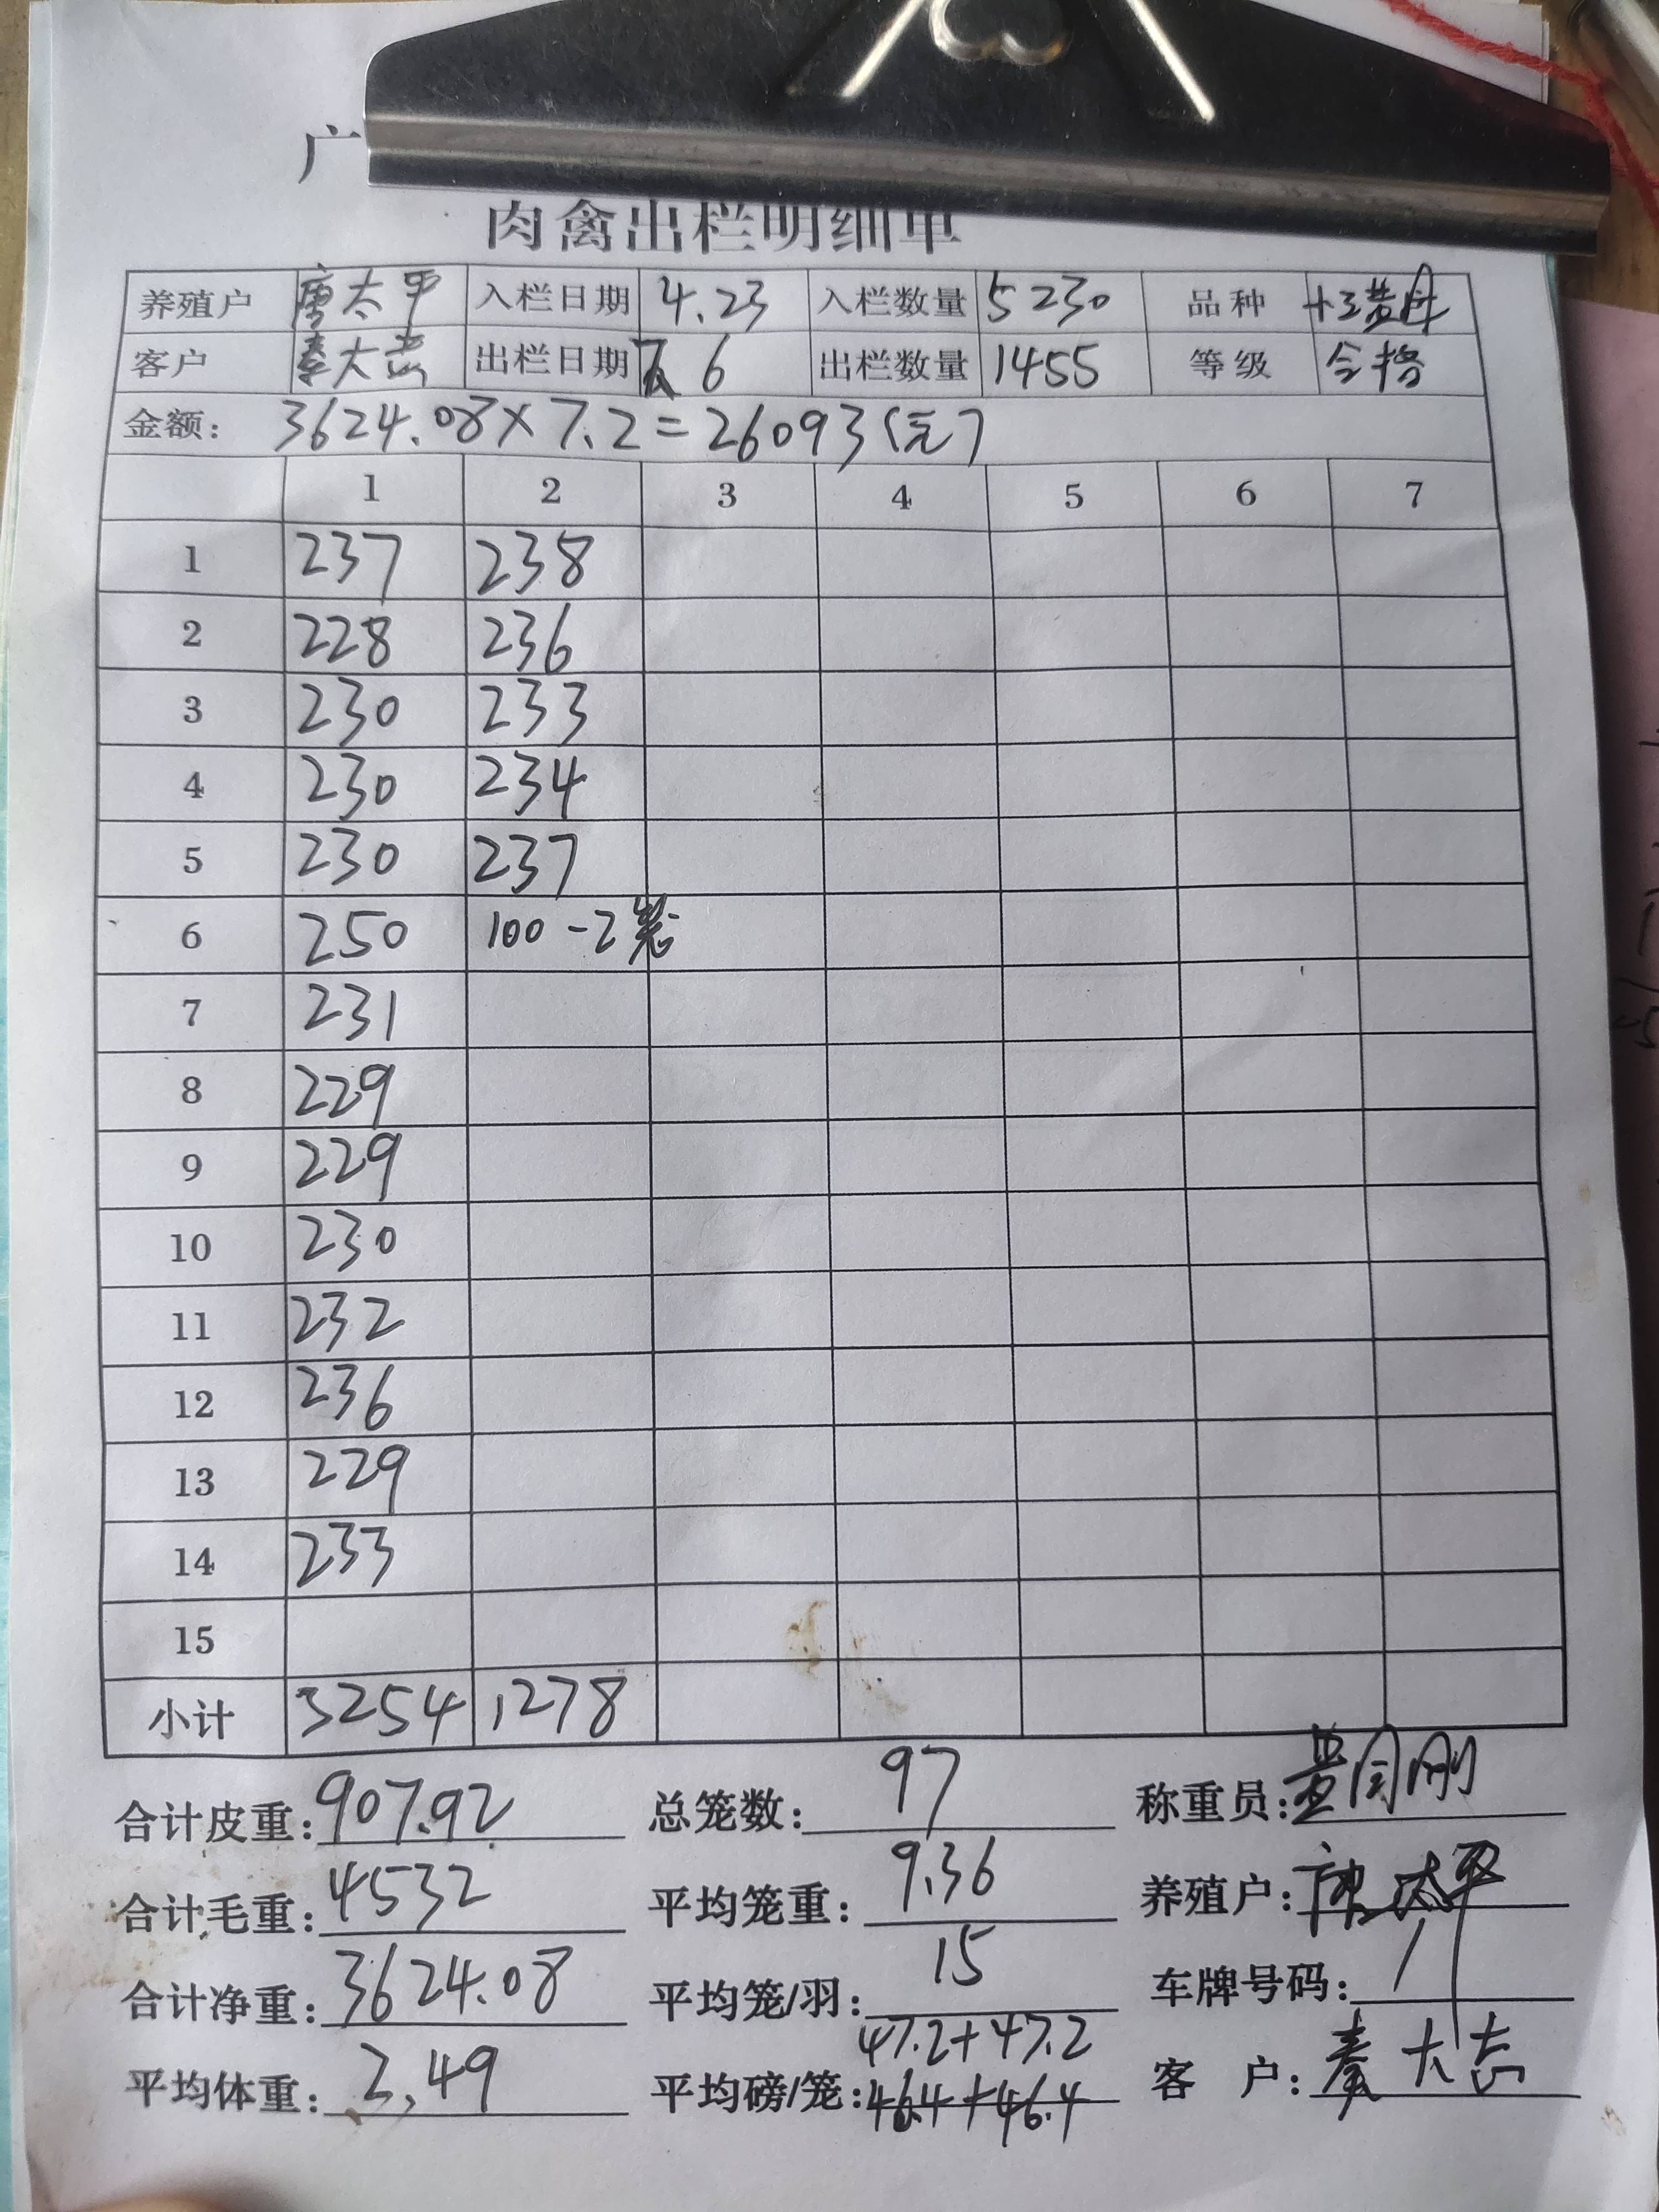 广
肉禽出栏明细单
养殖户 唐太平 入栏日期 4.23 入栏数量 5230 品种 土三黄母
客户 秦大志 出栏日期 7.6 出栏数量 1455 等级 合格
金额: 3624.08×7.2=26093(元)
1 2 3 4 5 6 7
1 237 238
2 228 236
3 230 233
4 230 234
5 230 237
6 250 100-2笼
7 231
8 229
9 229
10 230
11 232
12 236
13 229
14 233
15
小计 3254 1278
合计皮重: 907.92 总笼数: 97 称重员:
合计毛重: 4532 平均笼重: 9.36 养殖户: 唐太平
合计净重: 3624.08 平均笼/羽: 15 车牌号码:
47.2+47.2
平均体重: 2.49 平均磅/笼: 46.4+46.4 客 户: 秦大志